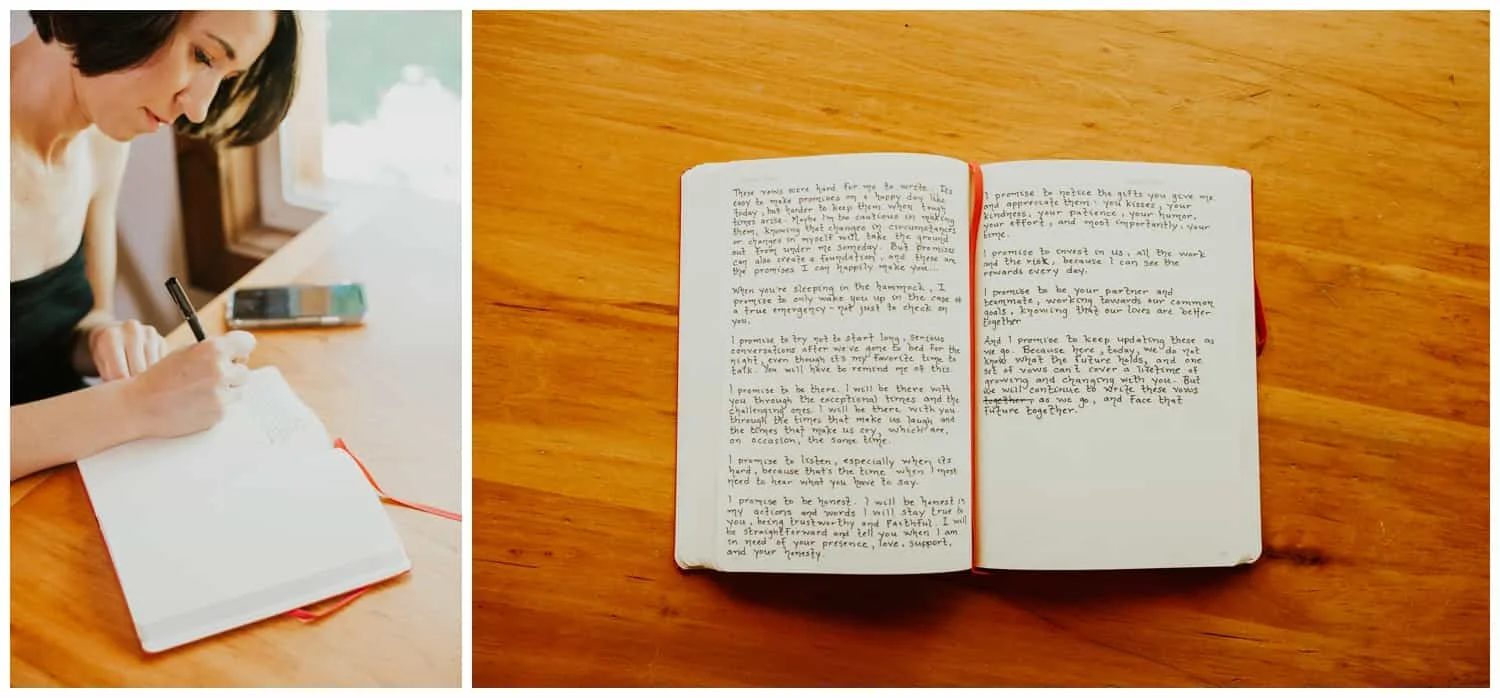 These vows were hard for me to write. Its
easy to make promises on a happy day like
today, but harder to keep them when tough
times arise. Maybe I'm too cautious in making
them, knowing that changes in circumstances
or changes in myself will take the ground
out from under me someday. But promises
can also create a foundation, and these are
the promises I can happily make you...
When you're sleeping in the hammock, I
promise to only wake you up in the case of
a true emergency - not just to check on
you.
I promise to try not to start long, serious
conversations after we've gone to bed for the
night, even though it's my favorite time to
talk. You will have to remind me of this.
I promise to be there. I will be there with
you through the exceptional times and the
challenging ones. I will be there with you
through the times that make us laugh and
the times that make us cry, which are,
on occasion, the same time.
I promise to listen, especially when its
hard, because that's the time when I most
need to hear what you have to say.
I promise to be honest. I will be honest in
my actions and words I will stay true to
you, being trustworthy and faithful. I will
be straightforward and tell you when I am
in need of your presence, love, support,
and your honesty.
I promise to notice the gifts you give me
and appreciate them: you kisses, your
kindness, your patience, your humor,
your effort, and most importantly, your
time.
I promise to invest in us, all the work
and the risk, because I can see the
rewards every day.
I promise to be your partner and
teammate, working towards our common
goals, knowing that our lives are better
together
And I promise to keep updating these as
we go. Because here, today, we do not
know what the future holds, and one
set of vows can't cover a lifetime of
growing and changing with you. But
we will continue to write these vows
together, as we go, and face that
future together.